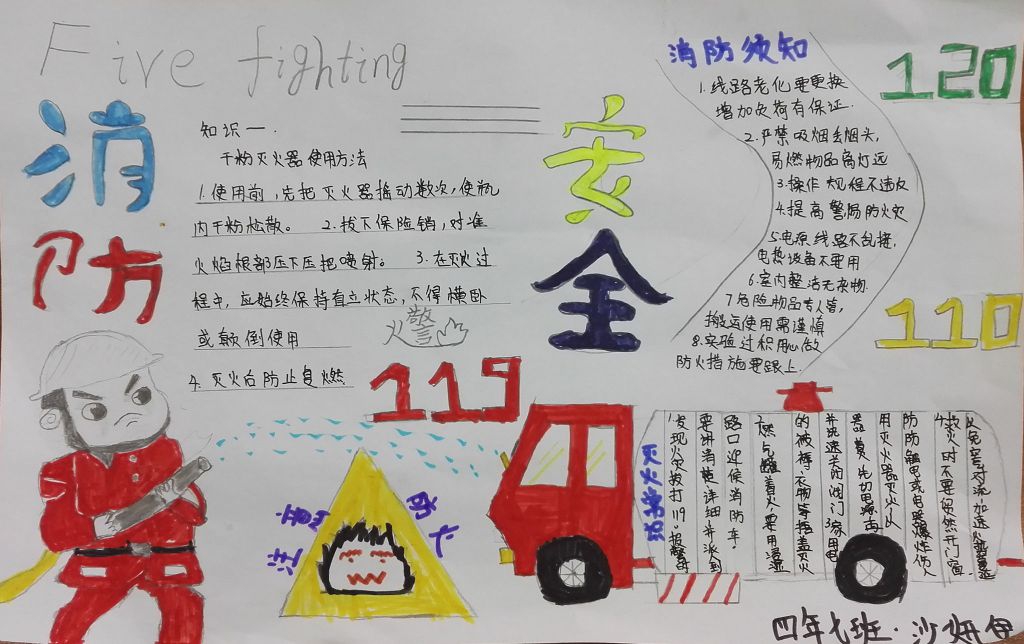 Five fighting
消防
安全
知识一.
干粉灭火器使用方法
1.使用前,先把灭火器摇动数次,使瓶
内干粉松散。 2.拔下保险销,对准
火焰根部压下压把喷射。 3.在灭火过
程中,应始终保持直立状态,不得横卧
或颠倒使用
4.灭火后防止复燃
火警
119
消防须知
1.线路老化要更换
增加负荷有保证.
2.严禁吸烟丢烟头,
易燃物品离灯远
3.操作规程不违反
4.提高警惕防火灾
5.电源线路不乱接,
电热设备不要用
6.室内整洁无杂物.
7危险物品专人管,
搬运使用需谨慎
8.实验过程用心做
防火措施要跟上.
120
110
注意
灭火常识
1.发现火灾拨打119。报警时
要讲清楚详细并派人到
路口迎候消防车.
2燃气罐着火,要用浸湿
的被褥、衣物等捂盖灭火
并迅速关闭阀门 3家用电
器着火先切电源再
用灭火器灭火以
防防触电或电器爆炸伤人
4救火时不要贸然开门窗
以免空气对流,加速火势蔓延
四年七班.沙